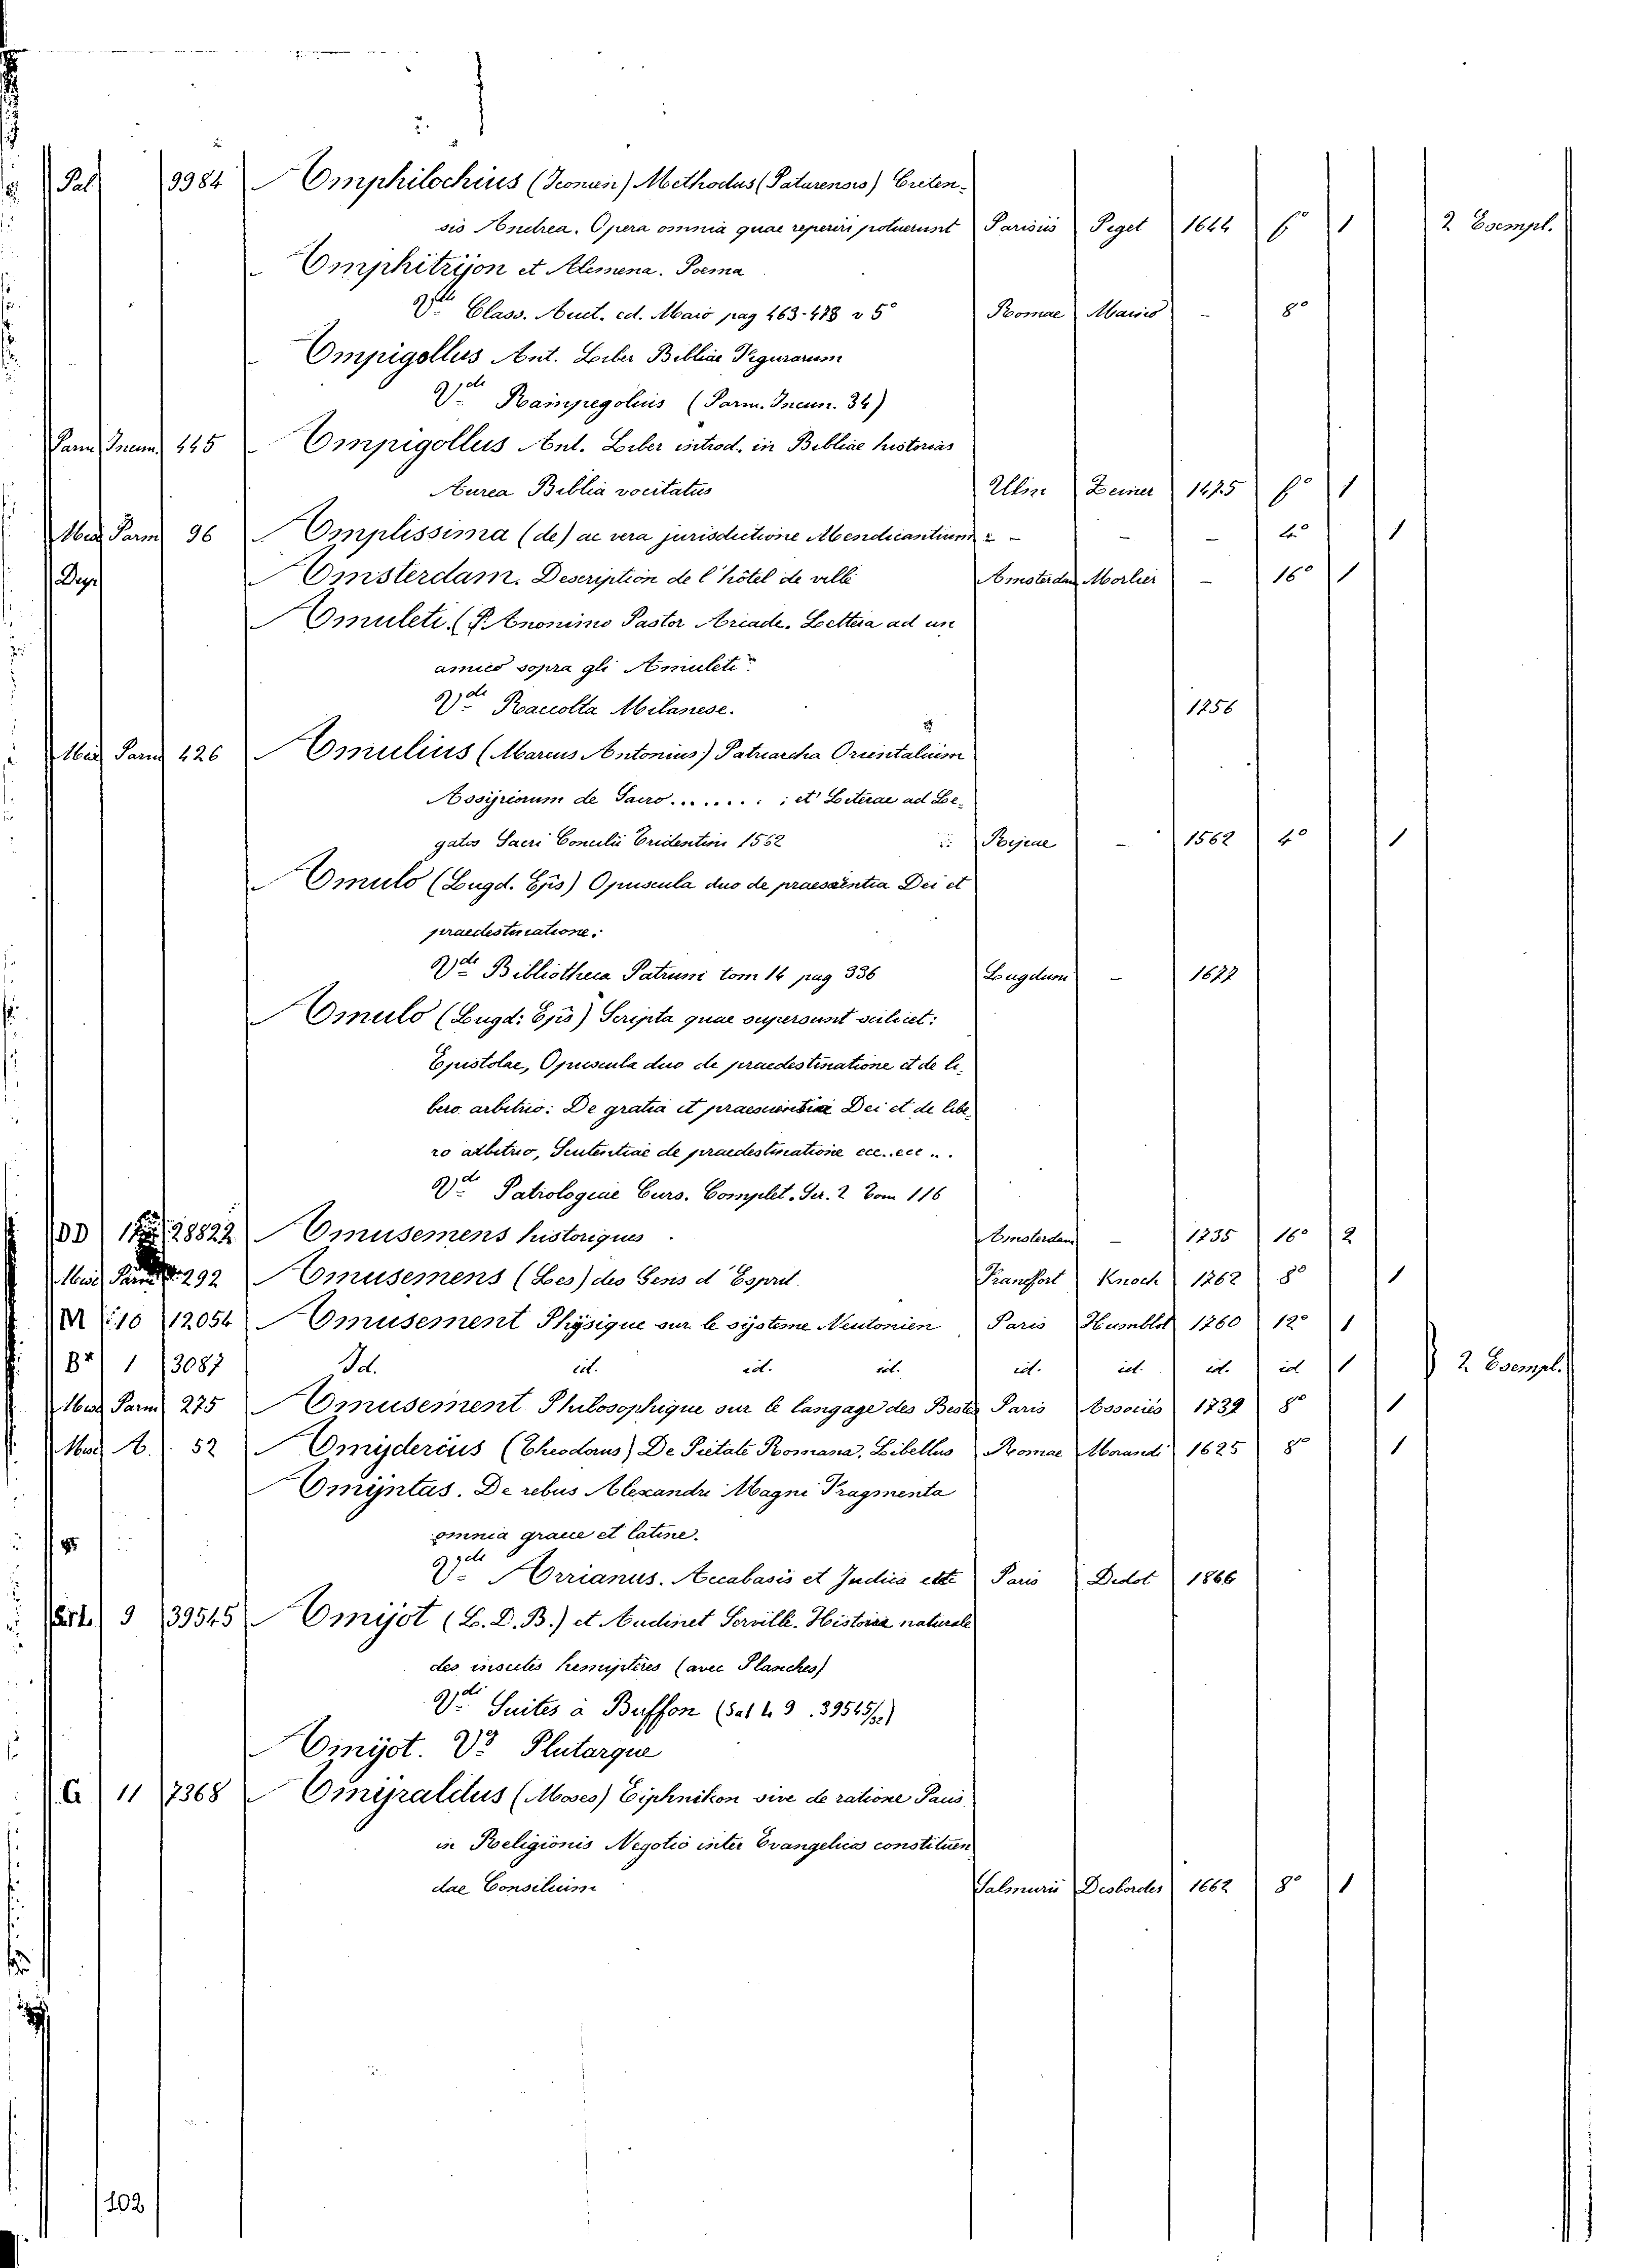 Pal 9984 Amphilochius (Iconien) Methodus (Patarensis) Creten-
sis Andrea. Opera omnia quae reperiri potuerunt Parisiis Piget 1644 f° 1 2 Esempl.
Amphitrijon et Alcmena. Poema
Vde Class. Auct. ed. Maio pag 463-478 v 5° Romae Maii 8°
Ampigollus Ant. Liber Bibliae Figurarum
Vde Rampegolius (Parm. Incun. 34)
Parm Incun 445 Ampigollus Ant. Liber introd. in Bibliae historias
Aurea Biblia vocitatus Ulm Zeiner 1475 f° 1
Misc Parm 96 Amplissima (de) ac vera jurisdictione Mendicantium - - - 4° 1
Dep Amsterdam. Description de l'hôtel de ville Amsterdam Morlier - 16° 1
Amuleti. (P. Anonimo Pastor Arcade. Lettera ad un
amico sopra gli Amuleti
Vde Raccolta Milanese. 1756
Misc Parm 426 Amulius (Marcus Antonius) Patriarcha Orientalium
Assijriorum de Sacro........; et Literae ad Le-
gatos Sacri Concilii Tridentini 1562 - 1562 4° 1
Amulo (Lugd. Eps) Opuscula duo de praescientia Dei et
praedestinatione.
Vde Bibliotheca Patrum tom 14 pag 336 Lugdum - 1677
Amulo (Lugd: Eps) Scripta quae supersunt scilicet:
Epistolae, Opuscula duo de praedestinatione et de li-
bero arbitrio: De gratia et praescientia Dei et de libe-
ro arbitrio, Sententiae de praedestinatione ecc..ecc...
Vde Patrologiae Curs. Complet. Ser. 2 Tom 116
DD 28822 Amusemens historiques Amsterdam - 1735 16° 2
Misc Parm 292 Amusemens (Les) des Gens d'Esprit. Francfort Knoch 1762 8° 1
M 10 12054 Amusement Phijsique sur le sijsteme Neutonien Paris Humblot 1760 12° 1
B* 1 3087 Id. id. id. id. id. id. id. id 1 2 Esempl.
Misc Parm 275 Amusement Philosophique sur le langage des Bestes Paris Associés 1739 8° 1
Misc A. 52 Amijdenius (Theodorus) De Pietate Romana, Libellus Romae Morandi 1625 8° 1
Amijntas. De rebus Alexandri Magni Fragmenta
omnia graece et latine.
Vde Arrianus. Anabasis et Indica Paris Didot 1866
9 39545 Amijot (C. D. B.) et Audinet Serville. Histoire naturale
des insectes hemiptères (avec Planches)
Vde Suites à Buffon (Sal 4 9. 39545/32)
Amijot. Vde Plutarque
G 11 7368 Amijraldus (Moses) Eiphnikon sive de ratione Pacis
in Religionis Negotio inter Evangelicos constituen
dae Consilium Salmurii Desbordes 1662 8° 1
102